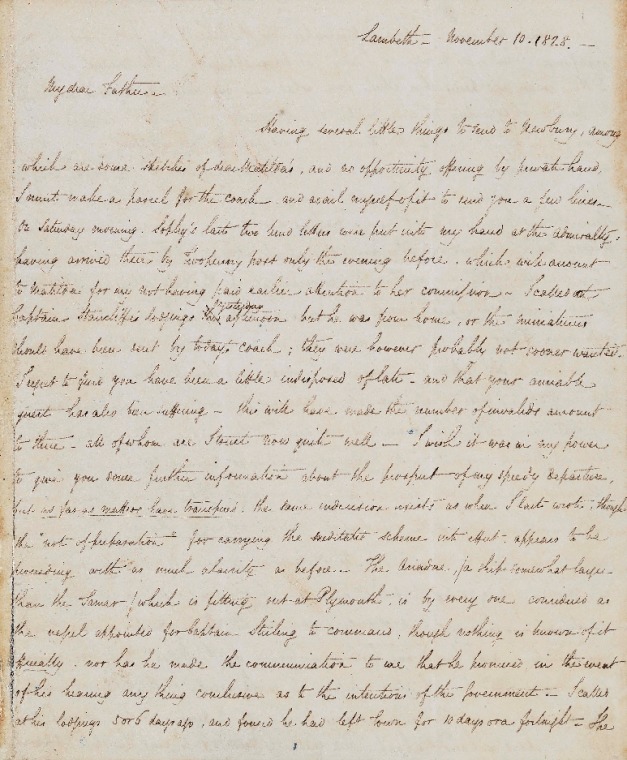 Lambeth - November 10. 1828. -
My dear Father -
Having several little things to send to Newbury, among
which are some sketches of dear Matilda's, and no opportunity offering by private hand,
I must make a parcel for the coach and avail myself of it to send you a few lines -
On Saturday morning Sophy's last two kind letters were put into my hand at the Admiralty:
having arrived there by Twopenny post only the evening before, which will account
to Matilda for my not having paid earlier attention to her commission - I called at
Captain lodgings yesterday afternoon but he was from home, or the miniatures
should have been sent by today's coach; they were however probably not sooner wanted.
I regret to find you have been a little indisposed of late - and that your amiable
guest has also been suffering - this will have made the number of invalids amount
to three - all of whom are I trust now quite well - I wish it was in my power
to give you some further information about the prospect of my speedy departure,
but as far as matters have transpired, the same indecision exists as when I last wrote, though
the "not of preparation" for carrying the meditated scheme into effect - appears to be
proceeding with as much alacrity as before. - The Ariadne, (a ship somewhat larger
than the Samar) which is fitting out at Plymouth, is by every one considered as
the vessel appointed for Captain Stirling to command, though nothing is known of it
officially, nor has he made the communication to me that he promised in the event
of his hearing any thing conclusive as to the intentions of the Government - I called
at his lodgings 5 or 6 days ago, and found he had left town for 10 days or a fortnight - The